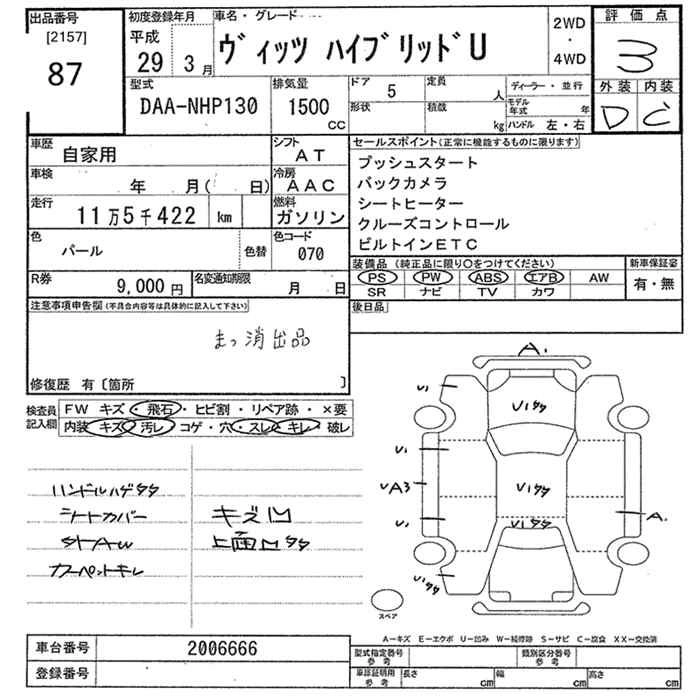 出品番号
[2157]
87
初度登録年月
平成
29 3月
車名・グレード
ヴィッツ ハイブリッドU
2WD
・
4WD
評価点
3
外装 内装
D C
型式
DAA-NHP130
排気量
1500
CC
ドア 5
定員 人
ディーラー・並行
形状
積載 kg
モデル年式 年
ハンドル 左・右
車歴
自家用
シフト
AT
車検
年 月( 日)
冷房
AAC
走行
11万5千422 km
燃料
ガソリン
色
パール
色替
色コード
070
R券
9,000円
名変通知期限
月 日
セールスポイント(正常に機能するものに限ります)
プッシュスタート
バックカメラ
シートヒーター
クルーズコントロール
ビルトインETC
装備品(純正品に限り○をつけてください)
新車保証書
PS PW ABS エアB AW
有・無
SR ナビ TV カワ
後日品
注意事項申告欄(不具合内容等は具体的に記入して下さい)
まっ消出品
修復歴 有〔箇所 〕
検査員記入欄
FW キズ・飛石・ヒビ割・リペア跡・×要
内装 キズ・汚レ・コゲ・穴・スレ・キレ・破レ
ハンドルハゲタタ
シートカバー
カーペットキレ
キズU
A.
U1
U1
UA3
U1
A.
スペア
A−キズ E−エクボ U−凹み W−補修跡 S−サビ C−腐食 XX−交換済
車台番号
2006666
登録番号
型式指定番号
参考
類別区分番号
参考
車証証明用
参考
長さ cm
幅 cm
高さ cm